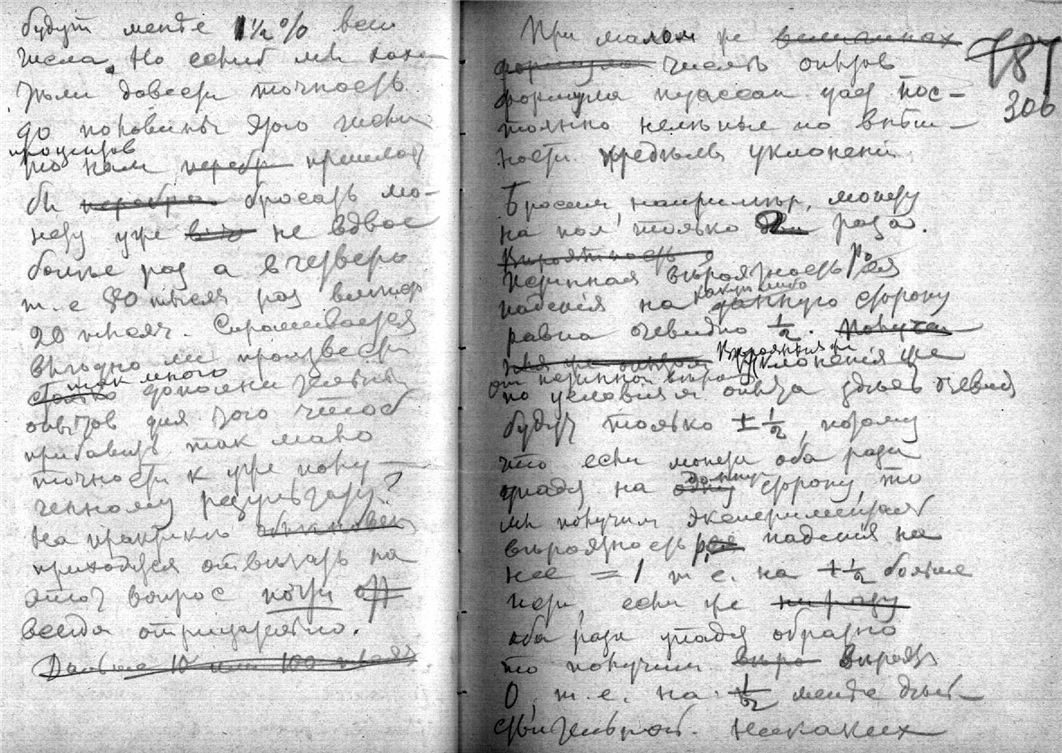 будут менее 1½% всего
числа. Но если б мы захо-
тели довести точность
до половины этого числа
процентов
то нам перебр пришлось
бы перебра бросать мо-
нету уже не вдвое
больше раз а вчетверо
т. е 80 тысяч раз вместо
20 тысяч. Спрашивается
выгодно ли произвести
столько так много дополнительных
опытов для того чтоб
прибавить так мало
точности к уже полу-
ченному результату?
На практикѣ обыкновен
приходится отвечать на
этот вопрос почти
всегда отрицательно.
Дальше 10 или 100 тысяч
При малом же величинах 787
формула числѣ опытов 306
формула Пуассон дает нас-
только нелѣпые по внѣш-
ности предѣлы уклонений
Бросим, например, монету
на пол только два раза.
Вѣроятность
Истинная вѣроятность ея
какую либо
падения на данную сторону
равна очевидно ½. Получен
Вѣроятныя
уклонения же
от истинной вѣроят
по условиям опыта здѣсь очевид
будут только ± ½, потому
что если монета оба раза
данную
упадет на одну сторону, то
мы получим экспериментал
вѣроятность ея падения на
нее = 1 т. е. на + ½ больше
истин, если же ни разу
оба раза упадет обратно
то получим вѣро вѣроят
0, т. е. на ½ менее дѣй-
ствительной. Никаких